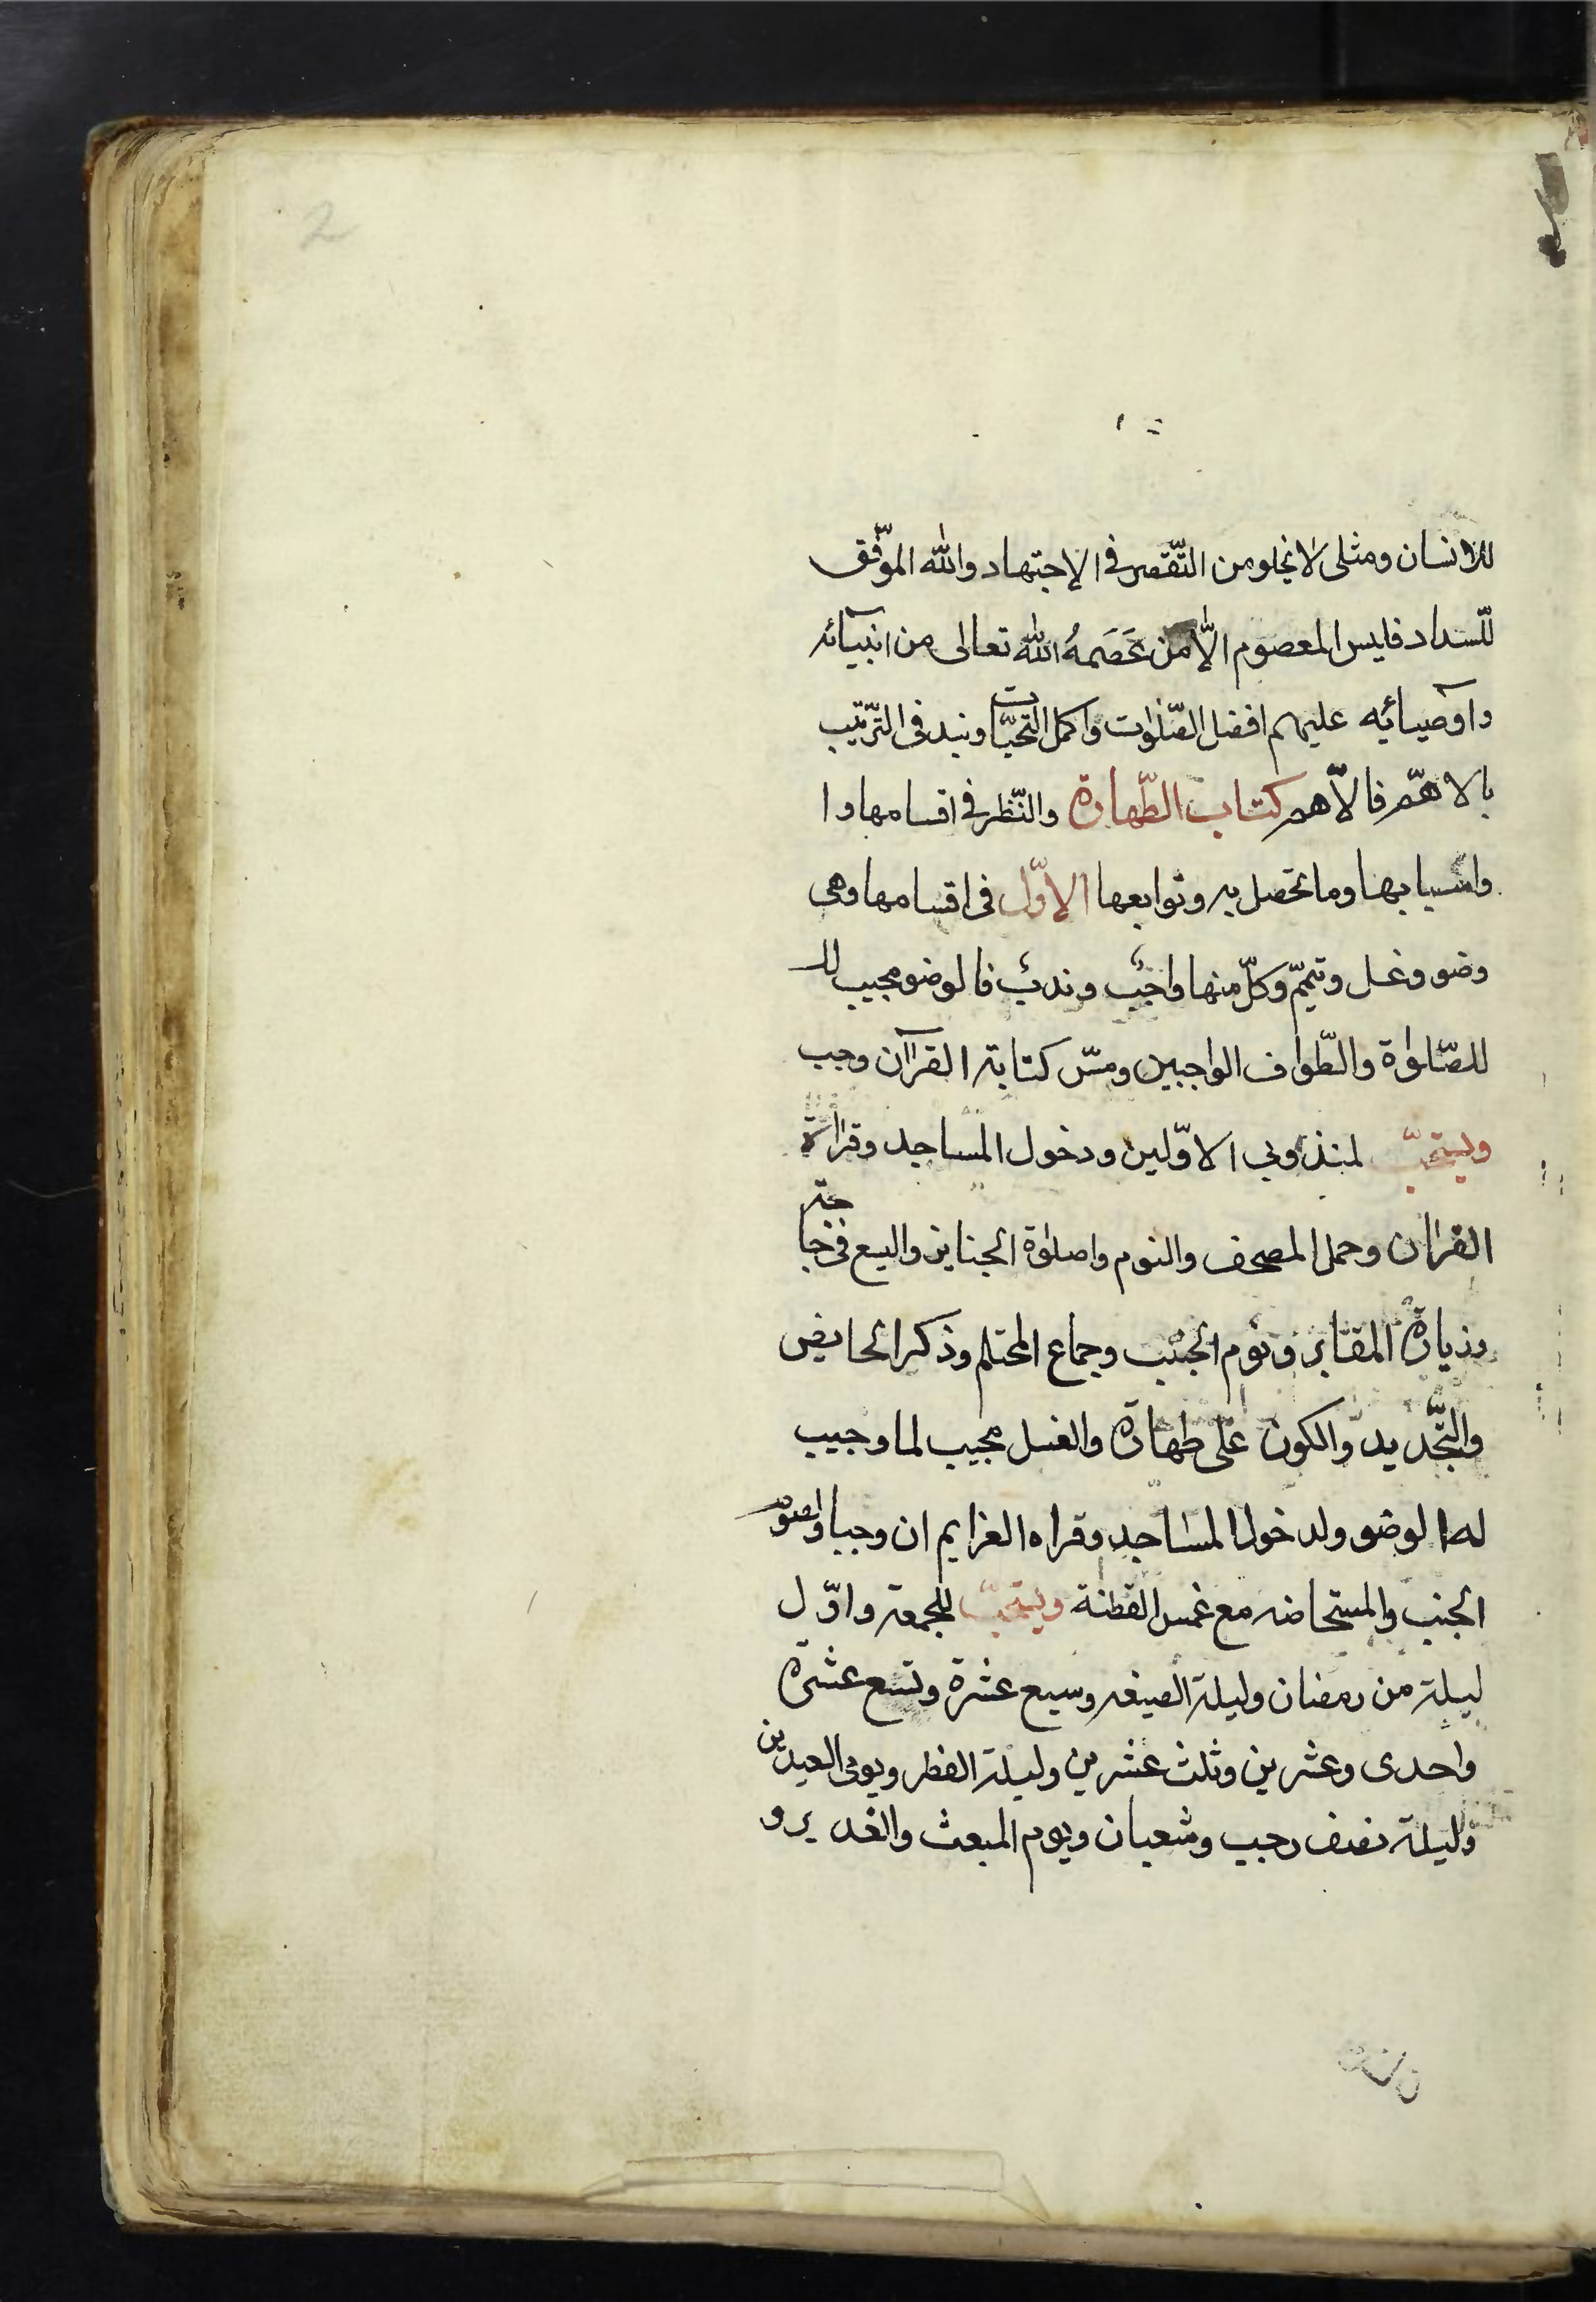 2
للانسان ومثلى لا يخلو من التّقصير فى الإجتهاد والله الموّفق
للّسداد فليس المعصوم الّا من عَصَمهُ الله تعالى من انبيآئه
واوصيآئيه عليهم افضل الصّلوات واكمل التحيّات ونبد فى التّرتيب
بالاهّم فالاّهم كتاب الطّهارة والنّظر فى اقسامها وا
واسبابها وما تحصل به وتوابعها الاوّل فى اقسامها وهى
وضو وغسل وتيمّم وكلّ منها واجبٌ وندبٌ فالوضو يجيب لل
للصّلوٰة والطّواف الواجبين ومسّ كتابة القرآن وجب
ويستحبّ لمندوبى الاوّلين ودخول المساجد وقراءة
القران وحمل المصحف والنوم واصلوٰة الجنايز والسع فى حاجته
وزيارة المقابر ونوم الجنب وجماع المحتلم وذكر الحايض
والتّجديد والكون على طهارة والغسل يجيب لما وجيب
له الوضو ولدخول المساجد وقراه العزايم ان وجبا ولصوم
الجنب والمستحاضه مع غمس القطنة ويستحبّ للجمعه واوّل
ليلة من رمضان وليلة النصيفه وسبع عشرة وتسع عشرة
واحدى وعشرين وثلث عشرين وليلة الفطر ويومى العيدين
وليلة نصف رجب وشعبان ويوم المبعث والغدير و